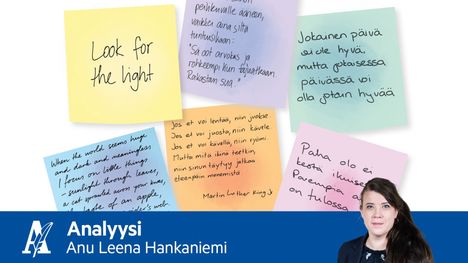 Look for
the light
peilikuvalle ääneen,
vaikka aina siltä
tuntuisikaan:
"Sä oot arvokas ja
rohkeempi kun
Rakastan sua."
Jokainen päivä
ei ole hyvä,
mutta jokaisessa
päivässä voi
olla jotain hyvää
When the world seems huge
and dark and meaningless
I focus on little things
sunlight through leaves,
a cat sprawled across your knees,
the taste of an apple,
web
Jos et voi lentää, niin juokse
Jos et voi juosta, niin kävele
Jos et voi kävellä, niin ryömi
Mutta mitä ikinä teetkin,
niin sinun täytyy jatkaa
eteenpäin menemistä
Martin Luther King Jr
Paha olo ei
kestä ikuisesti
Parempia
on tulossa
Analyysi
Anu Leena Hankaniemi